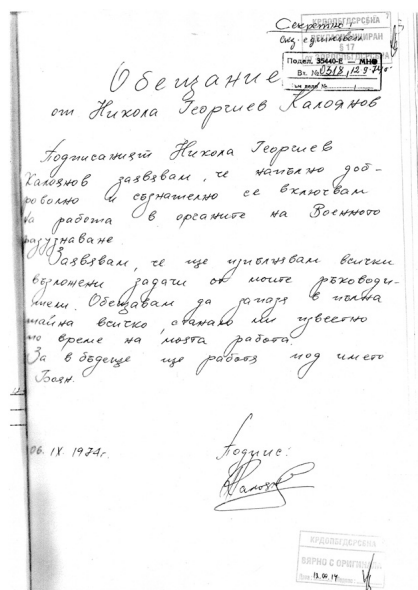 Секретно!
КРДОПБГДСРСБНА
След-
§ 17
Подел. 35440-Е — МНО
Вх. № 0318, 12.9.74г.
към дело №
Обещание
от Никола Георгиев Калоянов
Подписаният Никола Георгиев
Калоянов заявявам, че напълно доб-
роволно и съзнателно се включвам
на работа в органите на Военното
разузнаване.
Заявявам, че ще изпълнявам всички
възложени задачи от моите ръководи-
тели. Обещавам да запазя в пълна
тайна всичко, станало ми известно
по време на моята работа.
За в бъдеще ще работя под името
Боян.
06. IX. 1974г.
Подпис:
КРДОПБГДСРСБНА
ВЯРНО С ОРИГИНАЛА